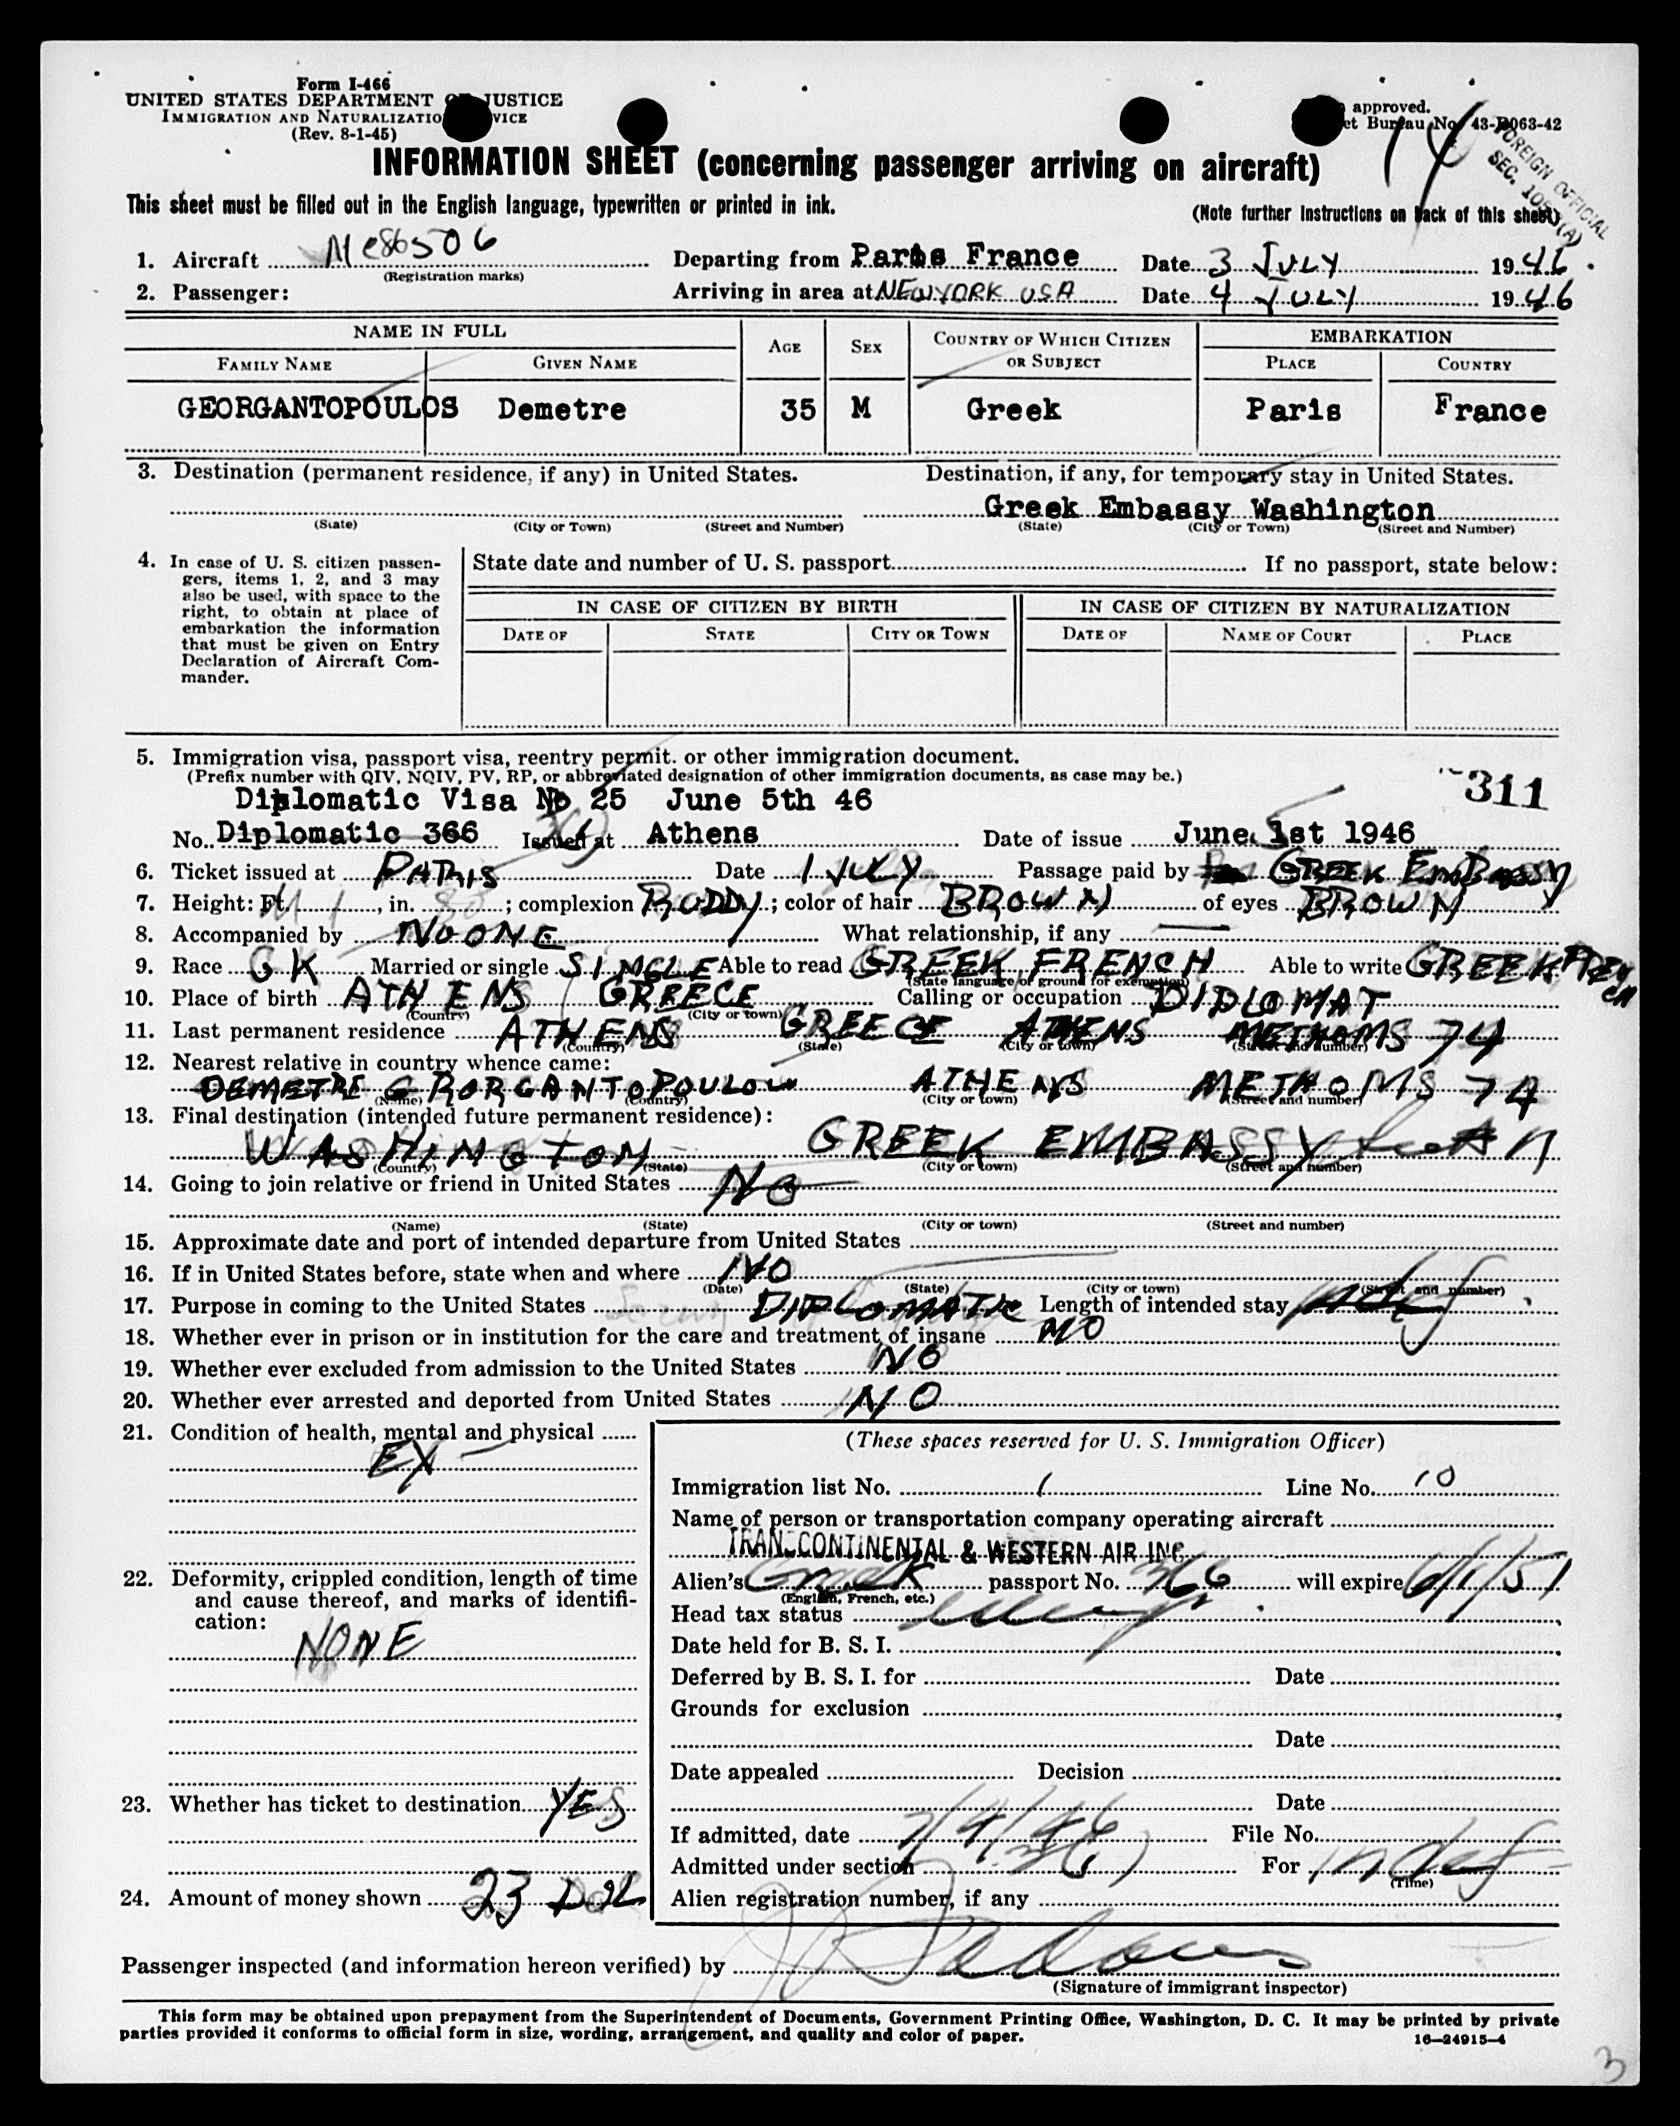 Form I-466
UNITED STATES DEPARTMENT OF JUSTICE
IMMIGRATION AND NATURALIZATION SERVICE
(Rev. 8-1-45)
approved.
et Bureau No. 43-R063-42
14
FOREIGN OFFICIAL
SEC.
INFORMATION SHEET (concerning passenger arriving on aircraft)
This sheet must be filled out in the English language, typewritten or printed in ink.
(Note further instructions on back of this sheet)
1. Aircraft Nc86506 Departing from Paris France Date 3 JULY 1946
(Registration marks)
2. Passenger: Arriving in area at NEW YORK USA Date 4 JULY 1946
NAME IN FULL AGE SEX COUNTRY OF WHICH CITIZEN OR SUBJECT EMBARKATION
FAMILY NAME GIVEN NAME PLACE COUNTRY
GEORGANTOPOULOS Demetre 35 M Greek Paris France
3. Destination (permanent residence, if any) in United States. Destination, if any, for temporary stay in United States.
Greek Embassy Washington
(State) (City or Town) (Street and Number) (State) (City or Town) (Street and Number)
4. In case of U. S. citizen passengers, items 1, 2, and 3 may also be used, with space to the right, to obtain at place of embarkation the information that must be given on Entry Declaration of Aircraft Commander.
State date and number of U. S. passport If no passport, state below:
IN CASE OF CITIZEN BY BIRTH IN CASE OF CITIZEN BY NATURALIZATION
DATE OF STATE CITY OR TOWN DATE OF NAME OF COURT PLACE
5. Immigration visa, passport visa, reentry permit. or other immigration document.
(Prefix number with QIV, NQIV, PV, RP, or abbreviated designation of other immigration documents, as case may be.)
311
Diplomatic Visa No 25 June 5th 46
No. Diplomatic 366 Issued at Athens Date of issue June 1st 1946
6. Ticket issued at PARIS Date 1 JULY Passage paid by GREEK EMBASSY
7. Height: Ft. M 1, in. 80; complexion RUDDY; color of hair BROWN of eyes BROWN
8. Accompanied by NOONE What relationship, if any —
9. Race GK Married or single SINGLE Able to read GREEK FRENCH Able to write GREEK FRENCH
(State language or ground for exemption)
10. Place of birth ATHENS GREECE Calling or occupation DIPLOMAT
(Country) (City or town)
11. Last permanent residence ATHENS GREECE ATHENS METHOMS 74
(Country) (State) (City or town) (Street and number)
12. Nearest relative in country whence came:
DEMETRE GEORGANTOPOULOU ATHENS METHOMS 74
(Name) (Country) (City or town) (Street and number)
13. Final destination (intended future permanent residence):
WASHINGTON GREEK EMBASSY
(Country) (State) (City or town) (Street and number)
14. Going to join relative or friend in United States NO
(Name) (State) (City or town) (Street and number)
15. Approximate date and port of intended departure from United States
16. If in United States before, state when and where NO
(Date) (State) (City or town) (Street and number)
17. Purpose in coming to the United States DIPLOMATIC Length of intended stay indef
18. Whether ever in prison or in institution for the care and treatment of insane NO
19. Whether ever excluded from admission to the United States NO
20. Whether ever arrested and deported from United States NO
21. Condition of health, mental and physical
EX
22. Deformity, crippled condition, length of time and cause thereof, and marks of identification:
NONE
23. Whether has ticket to destination YES
24. Amount of money shown 23 DOL
(These spaces reserved for U. S. Immigration Officer)
Immigration list No. 1 Line No. 10
Name of person or transportation company operating aircraft
TRANSCONTINENTAL & WESTERN AIR INC.
Alien's Greek passport No. 366 will expire 6/1/51
(English, French, etc.)
Head tax status
Date held for B. S. I.
Deferred by B. S. I. for Date
Grounds for exclusion
Date
Date appealed Decision
Date
If admitted, date 7/4/46 File No.
Admitted under section 3(6) For indef
(Time)
Alien registration number, if any
Passenger inspected (and information hereon verified) by
(Signature of immigrant inspector)
This form may be obtained upon prepayment from the Superintendent of Documents, Government Printing Office, Washington, D. C. It may be printed by private
parties provided it conforms to official form in size, wording, arrangement, and quality and color of paper. 16—24915-4
3